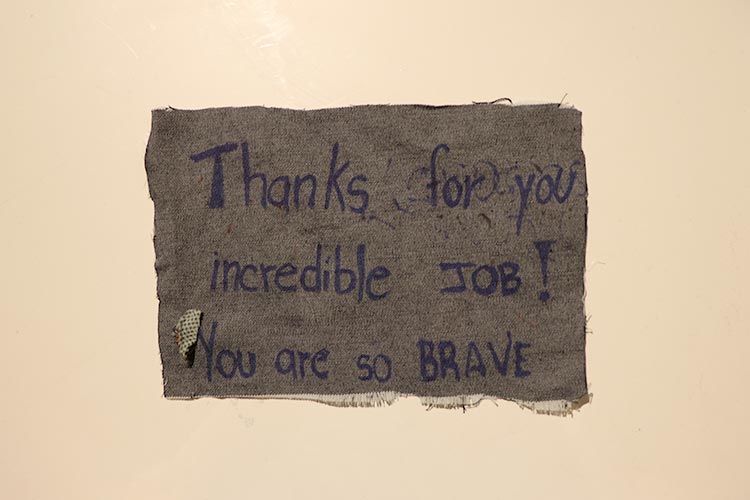 Thanks for you
incredible JOB!
You are so BRAVE